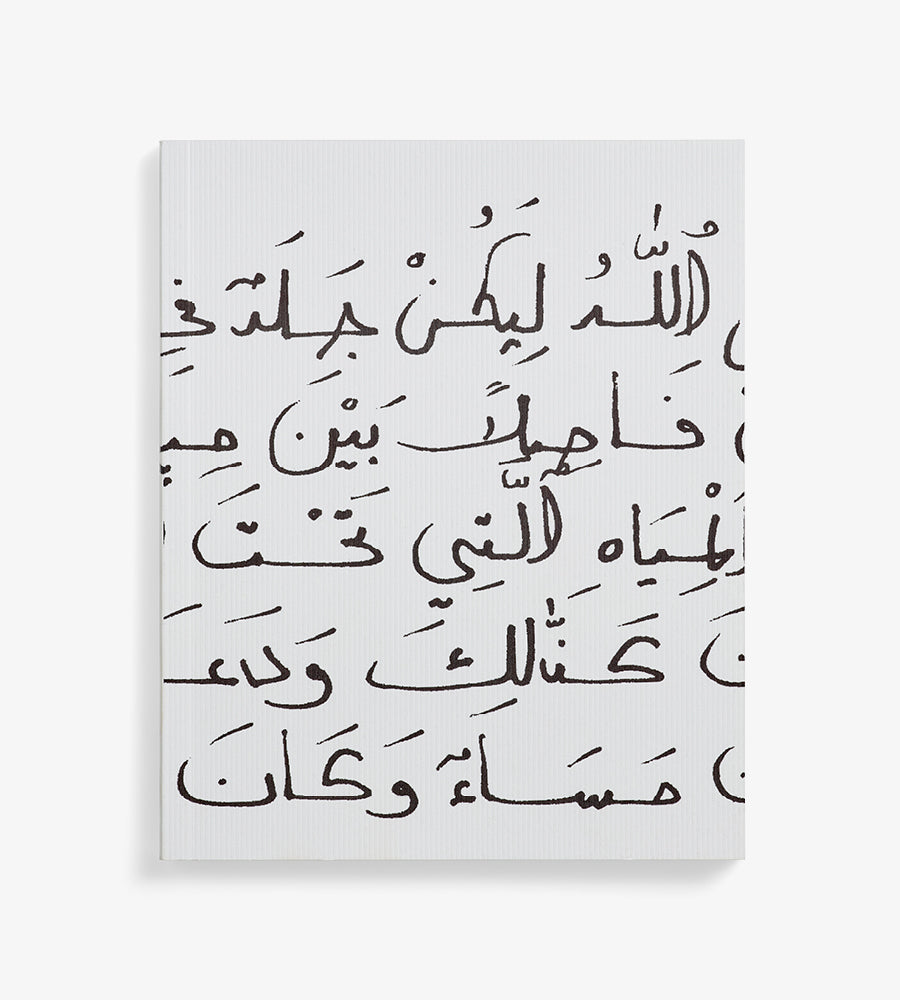 اُللَّهُ لِيَكُنْ جَلَدٌ
فَاصِلاً بَيْنَ
الْمِيَاه الَّتِي تَحْتَ
كَذَٰلِكَ وَدَعَـ
مَسَاءٌ وَكَانَ